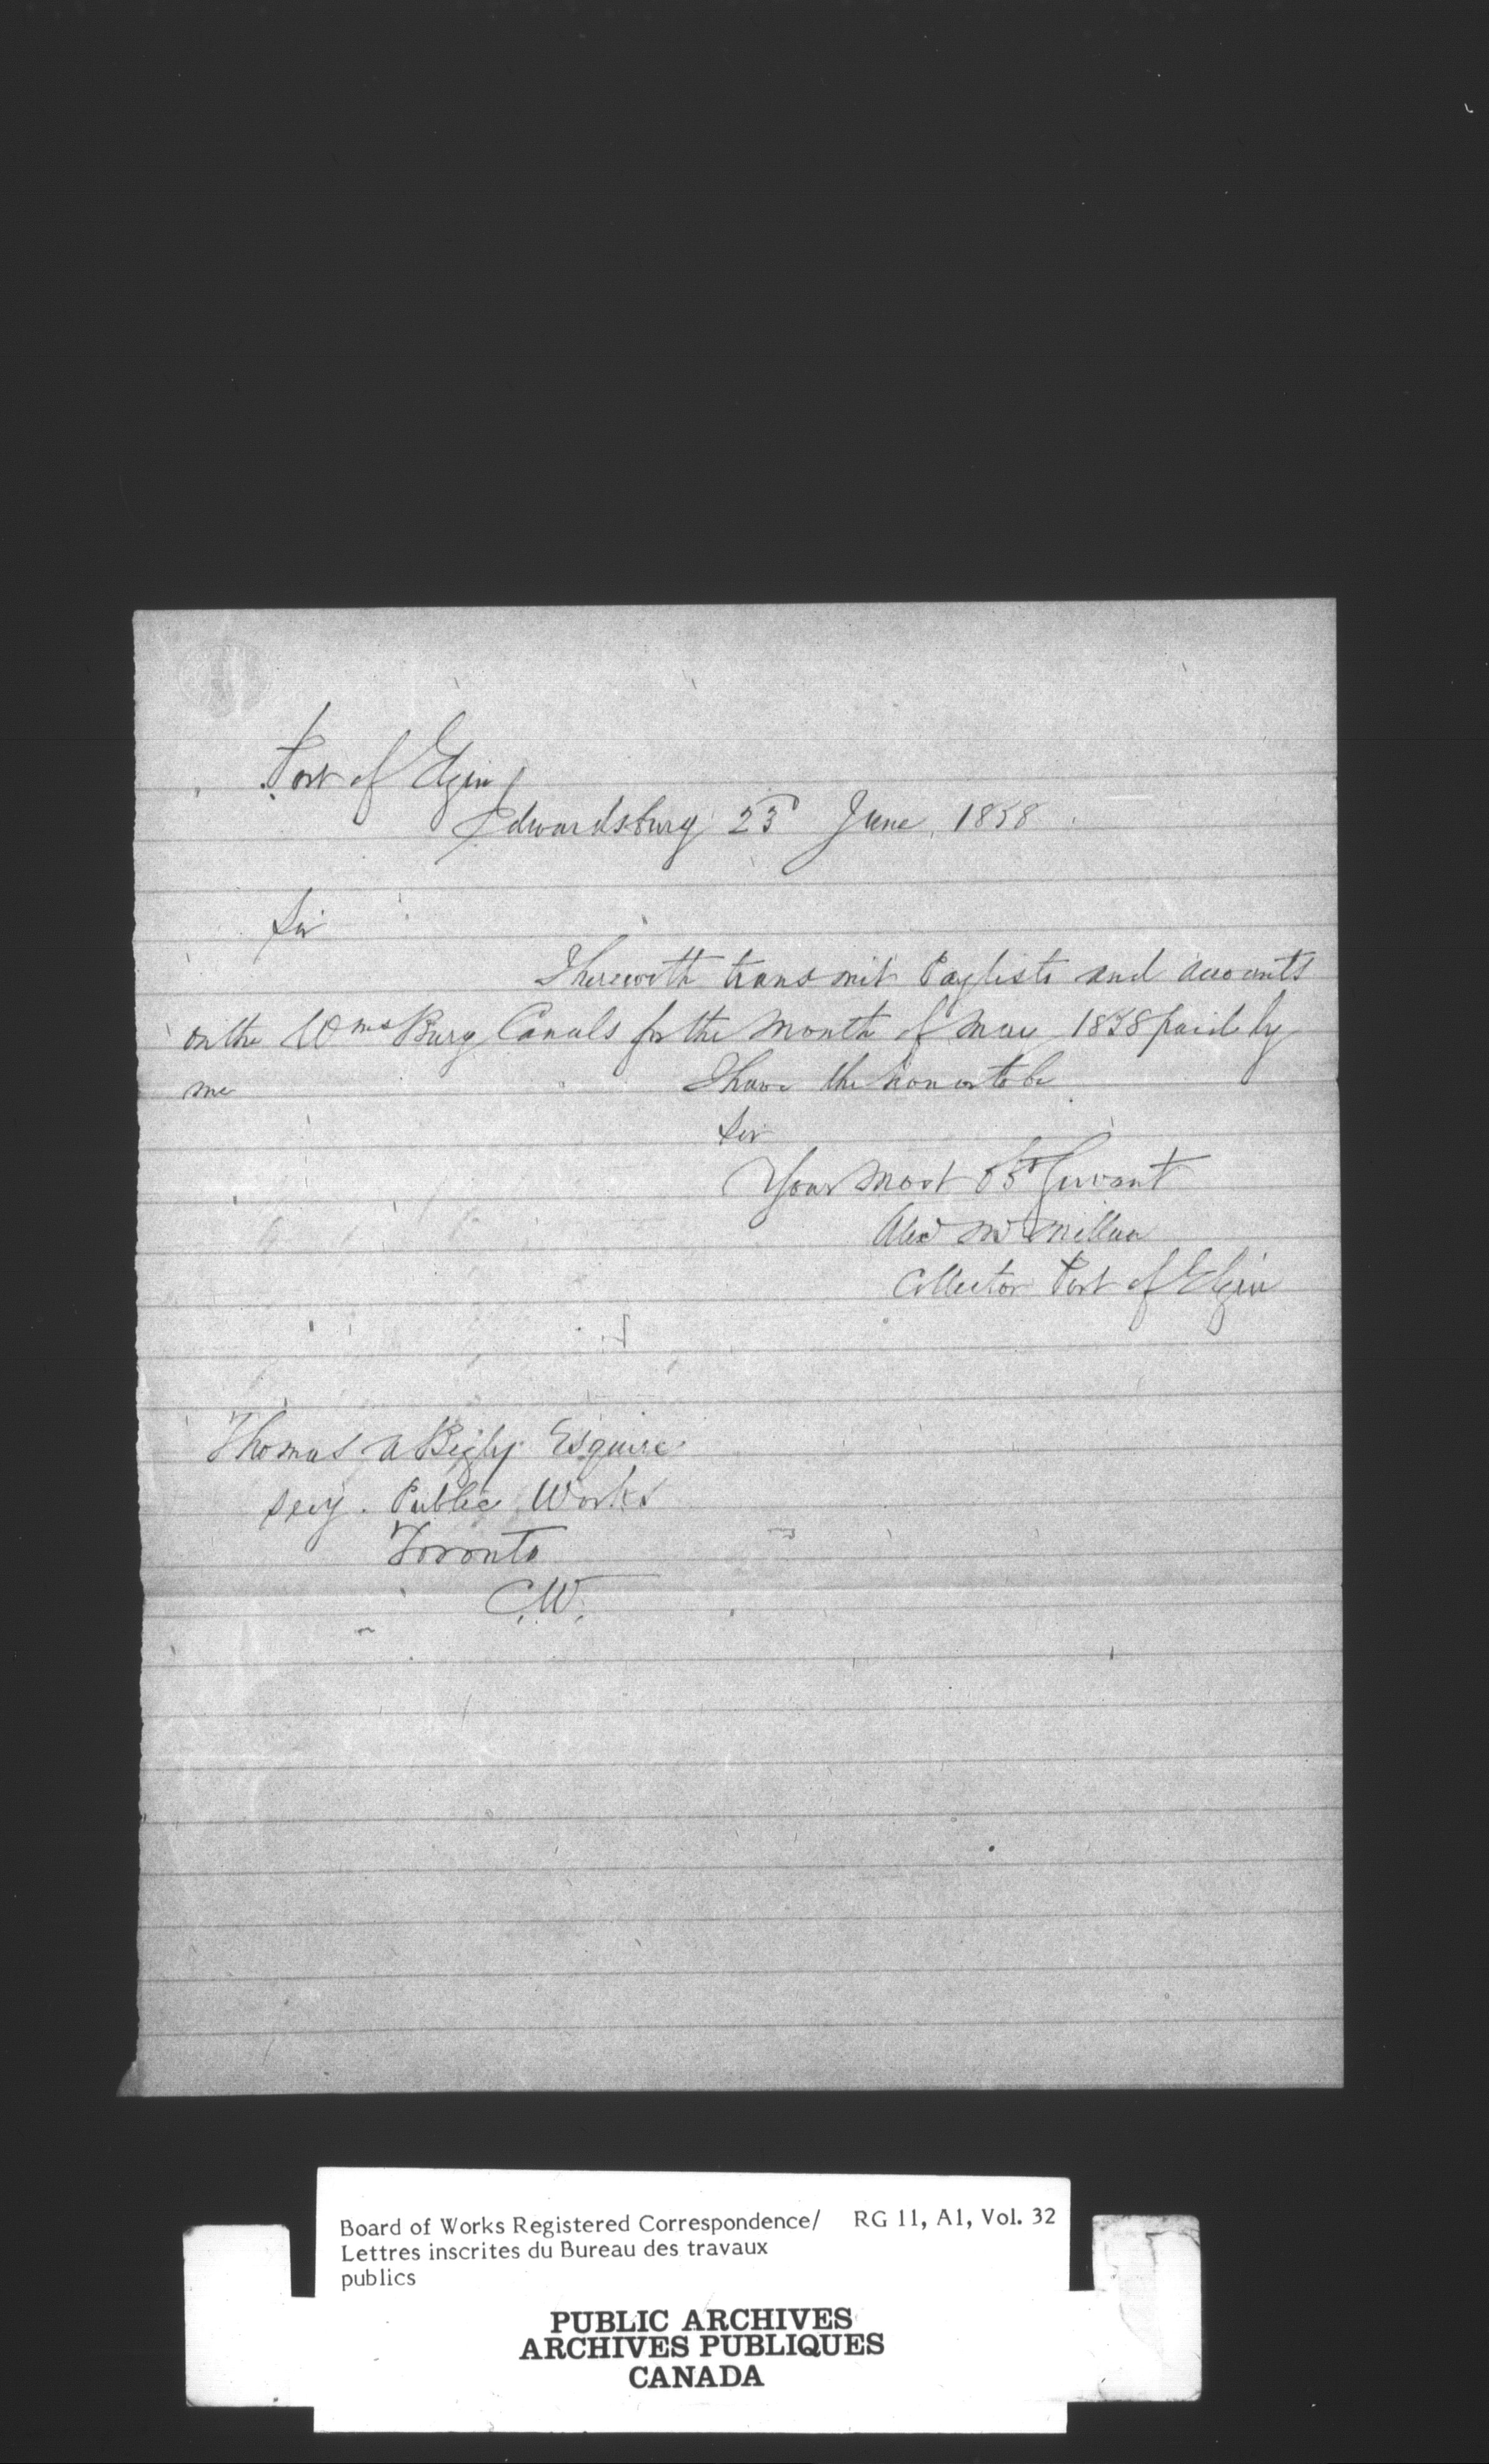 Port of Elgin
Edwardsburg 23d June 1858
Sir
I herewith transmit Paylists and accounts
on the Wms Burg Canals for the Month of May 1858 paid by
me I have the honor to be
Sir
Your Most Obt Servant
Alexr McMillan
Collector Port of Elgin
Thomas A Begly Esquire
Secy. Public Works
Toronto
C.W.
Board of Works Registered Correspondence/ RG 11, A1, Vol. 32
Lettres inscrites du Bureau des travaux
publics
PUBLIC ARCHIVES
ARCHIVES PUBLIQUES
CANADA